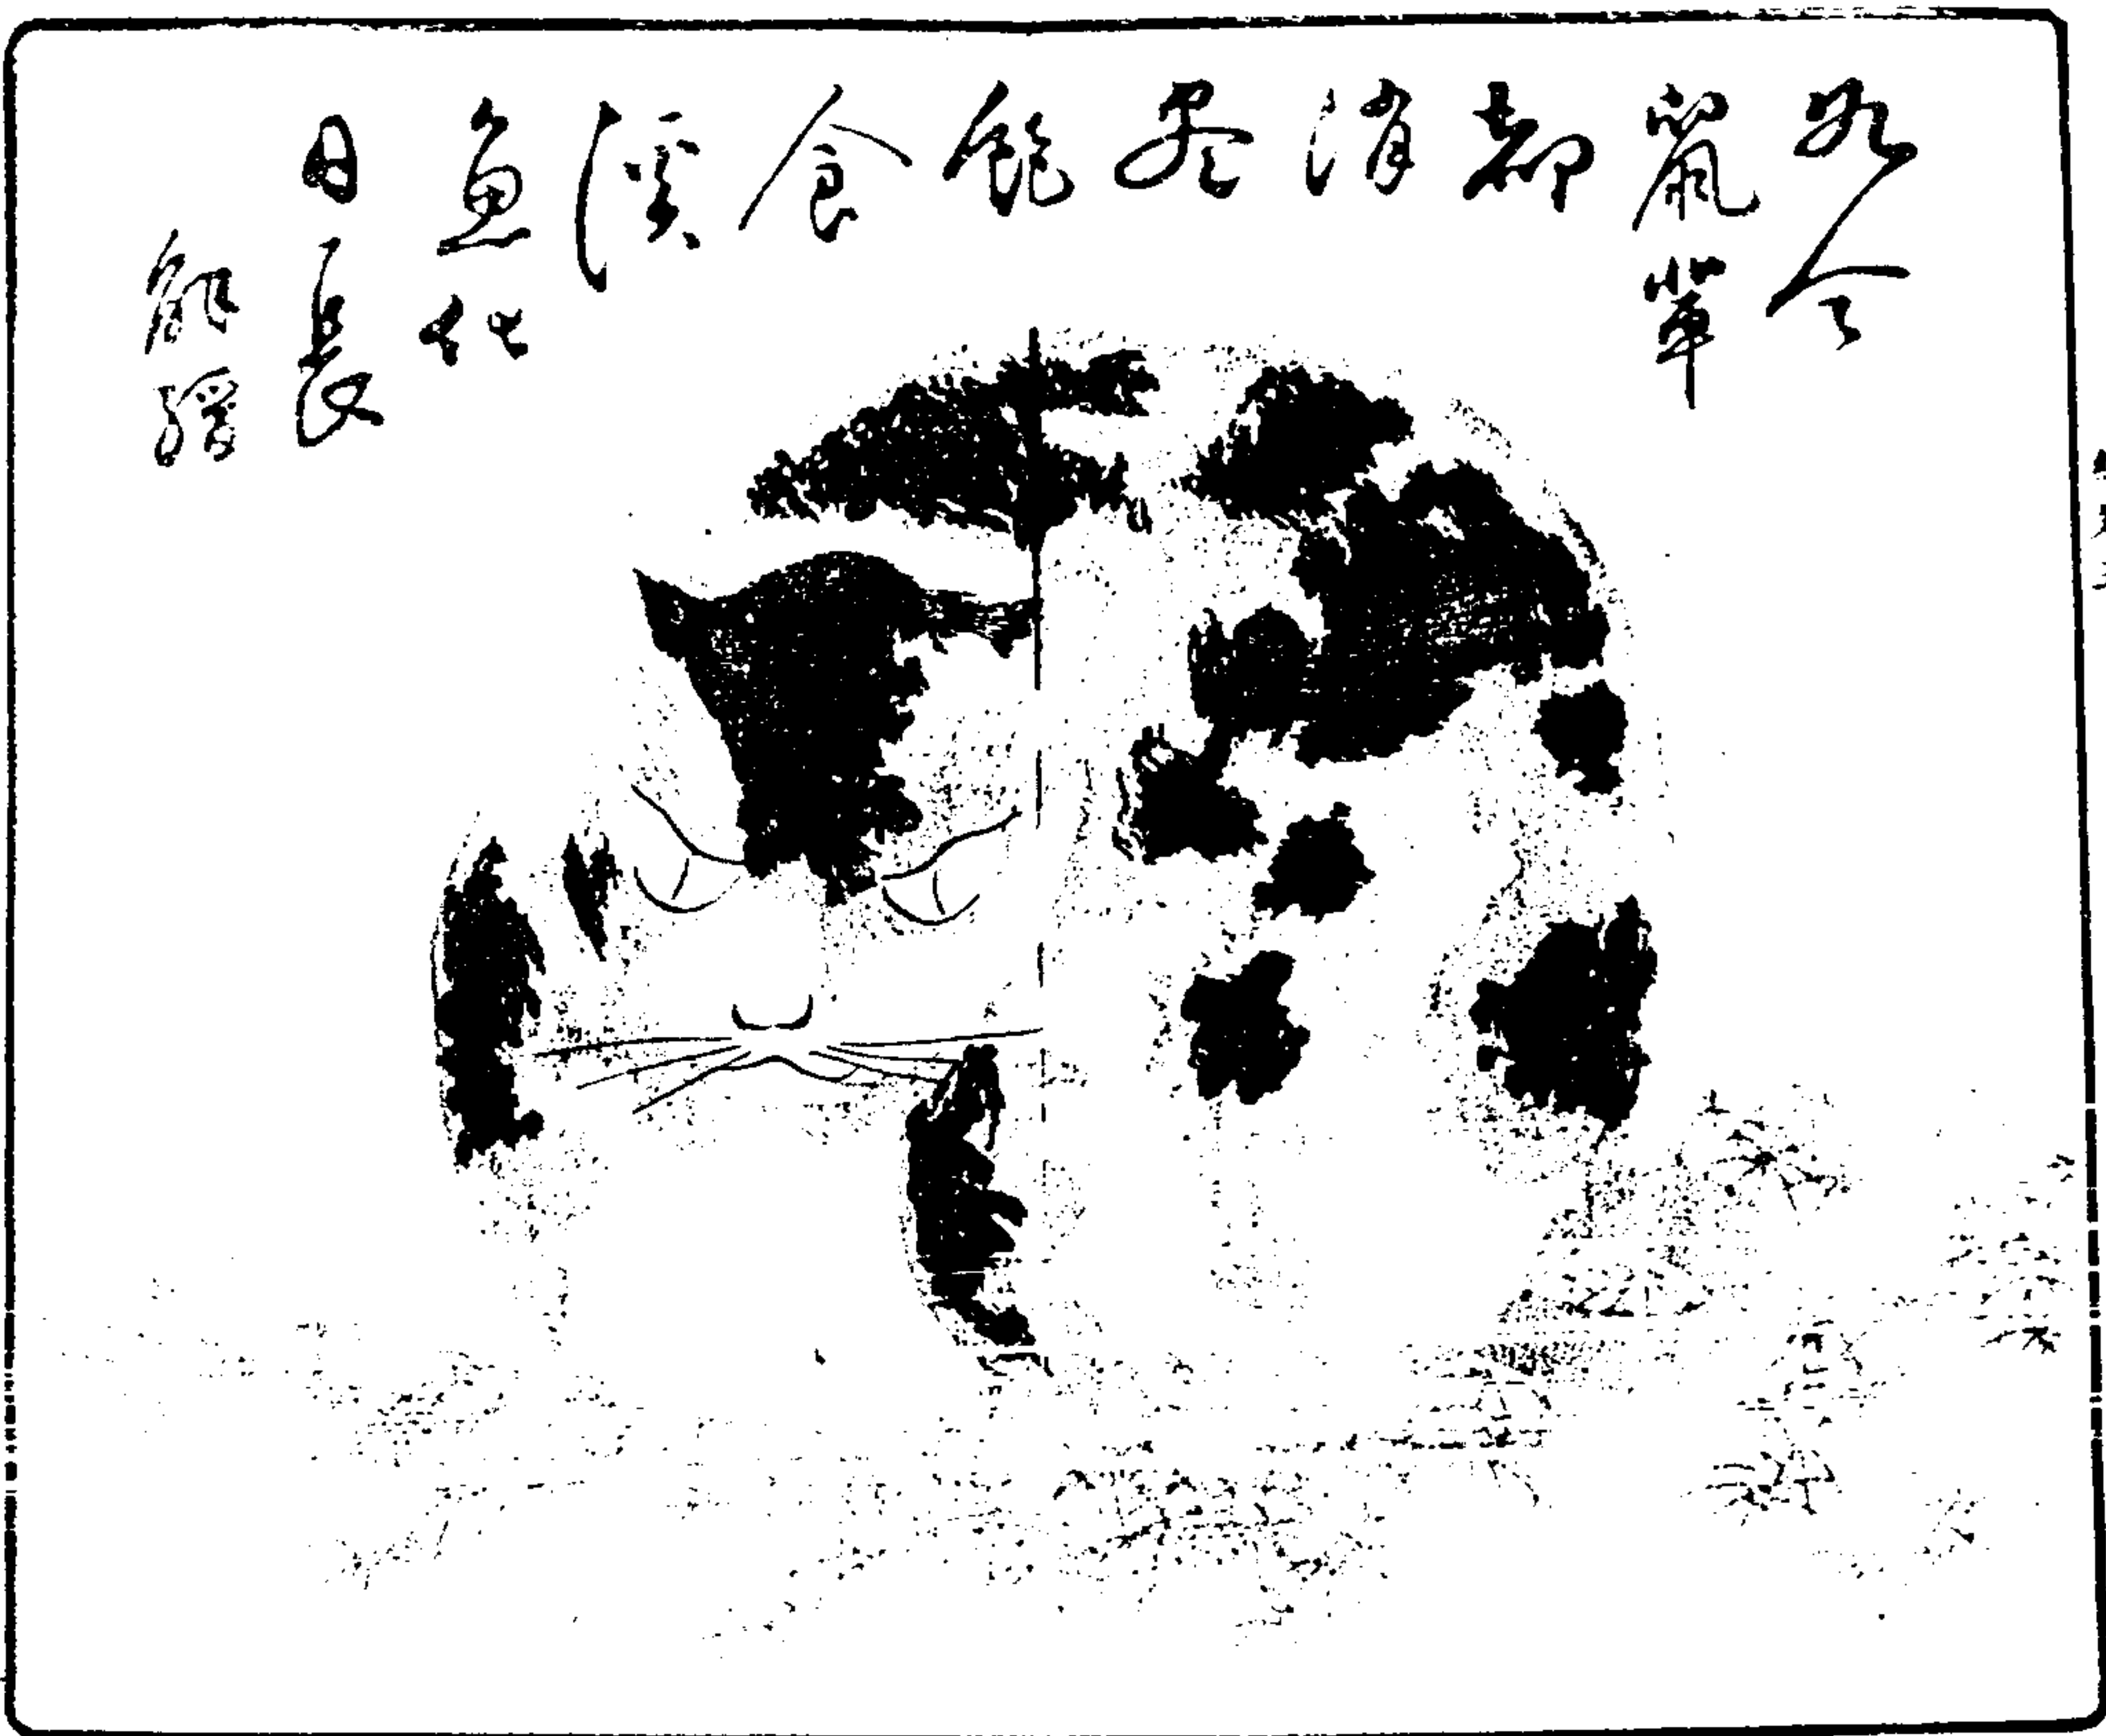 如今
鼠輩
都
消
盡
飽
食
溪
魚化
日長
解縉